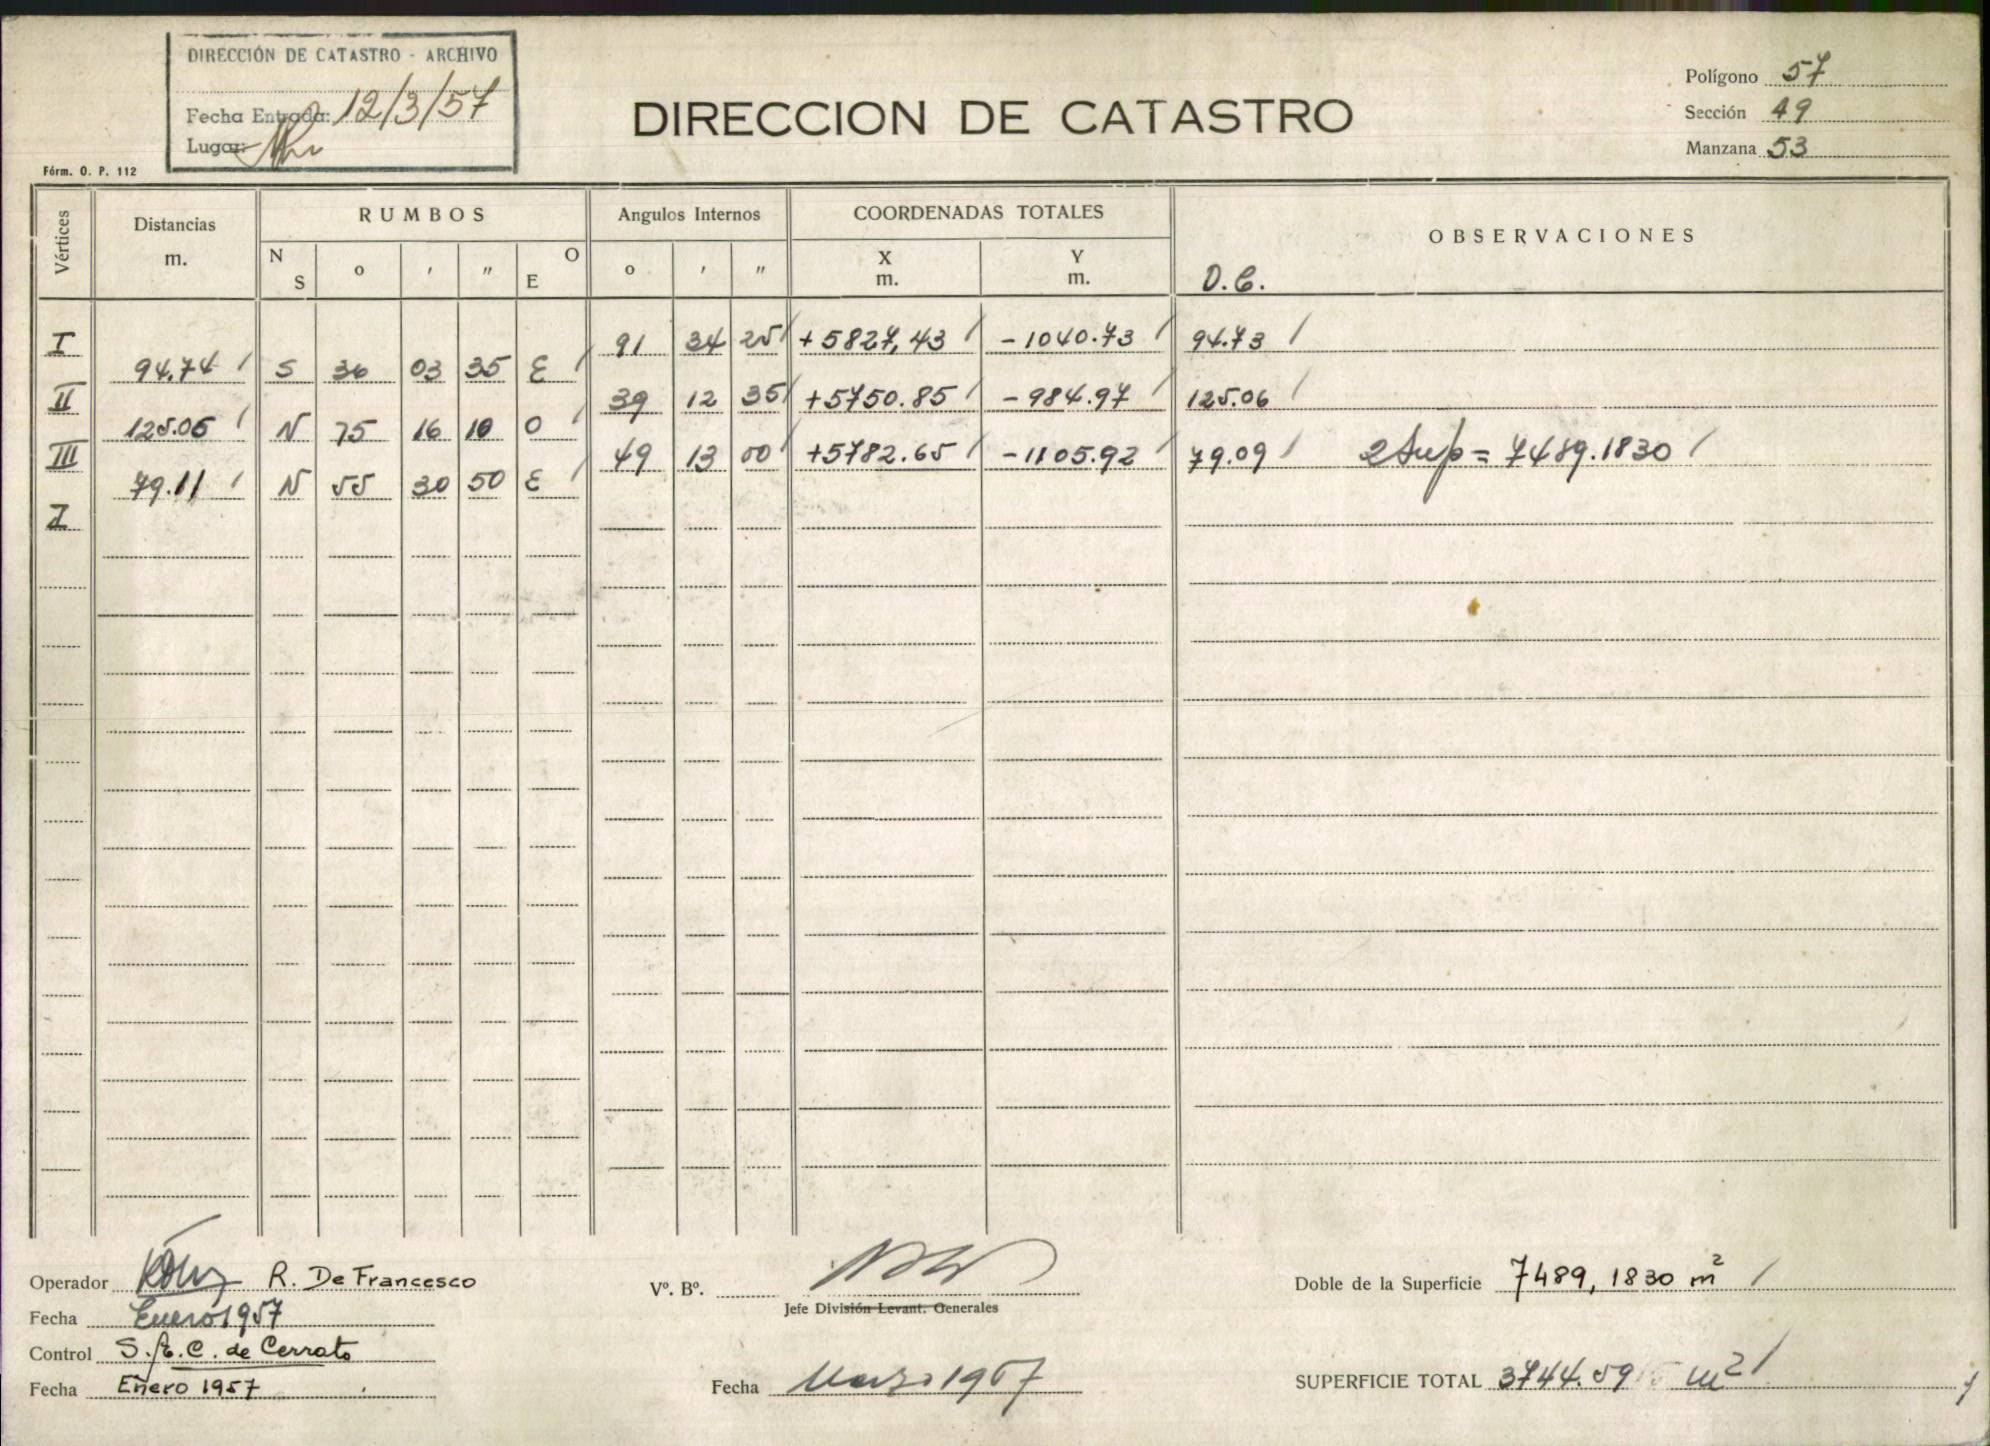 DIRECCIÓN DE CATASTRO - ARCHIVO
Fecha Entrada: 12/3/57
Lugar:
Fórm. O. P. 112
DIRECCION DE CATASTRO
Polígono 57
Sección 49
Manzana 53
Vértices Distancias m. RUMBOS Angulos Internos COORDENADAS TOTALES OBSERVACIONES
N S o ′ ″ O E o ′ ″ X m. Y m. D.C.
I 91 34 25 +5827,43 -1040.73 94.73
94.74 S 36 03 35 E
II 39 12 35 +5750.85 -984.97 125.06
125.06 N 75 16 10 O
III 49 13 00 +5782.65 -1105.92 79.09 2Sup= 7489.1830
79.11 N 55 30 50 E
I
Operador R. De Francesco
Fecha Enero 1957
Control S. E. C. de Cerrato
Fecha Enero 1957
Vº. Bº.
Jefe División Levant. Generales
Fecha Marzo 1957
Doble de la Superficie 7489,1830 m²
SUPERFICIE TOTAL 3744.59 m²